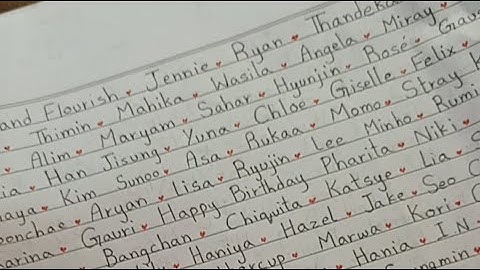 and Flourish ♥ Jennie ♥ Ryan ♥
♥ Thimin ♥ Mahika ♥ Wasila ♥ Angela ♥ Miray ♥
♥ Alim ♥ Maryam ♥ Sahar ♥ Hyunjin ♥ Rosé ♥
♥ Han Jisung ♥ Yuna ♥ Chloe ♥ Giselle ♥ Felix ♥
♥ Kim Sunoo ♥ Asa ♥ Rukaa ♥ Momo ♥ Stray
♥ Aryan ♥ Lisa ♥ Ryujin ♥ Lee Minho ♥ Rumi
♥ Gauri ♥ Happy Birthday Pharita ♥ Niki ♥
♥ Bangchan ♥ Chiquita ♥ Katsye ♥ Lia ♥
♥ Haniya ♥ Hazel ♥ Jake ♥ Seo
♥ Marwa ♥ Kori ♥
♥ Hania ♥ I.N ♥